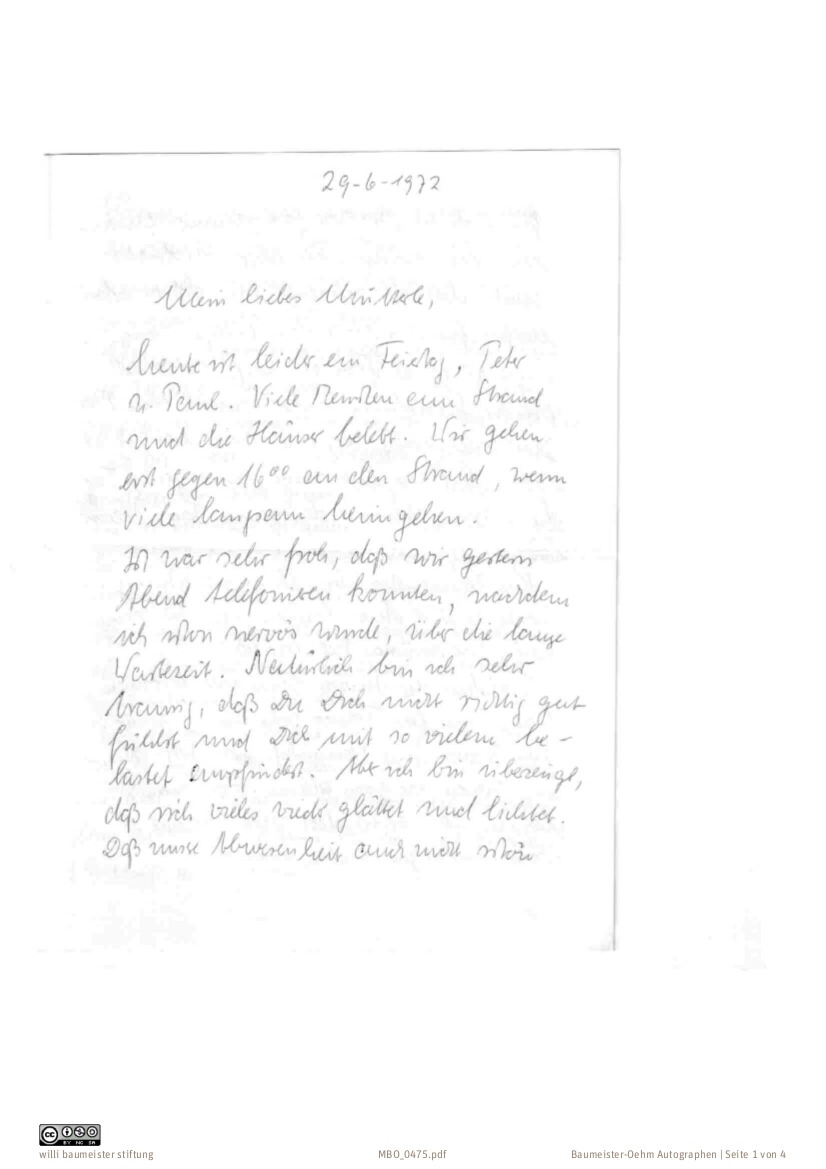 29-6-1972
Mein liebes Mütterle,
heute ist leider ein Feiertag, Peter
u. Paul. Viele Menschen am Strand
und die Häuser belebt. Wir gehen
erst gegen 16⁰⁰ an den Strand, wenn
viele langsam heimgehen.
Ich war sehr froh, daß wir gestern
Abend telefonieren konnten, nachdem
ich schon nervös wurde, über die lange
Wartezeit. Natürlich bin ich sehr
traurig, daß Du Dich nicht richtig gut
fühlst und Dich mit so vielem be-
lastet empfindest. Aber ich bin überzeugt,
daß sich vieles wieder glättet und lichtet.
Daß unsere Abwesenheit auch nicht schön
BY NC SA
willi baumeister stiftung
MBO_0475.pdf
Baumeister-Oehm Autographen | Seite 1 von 4